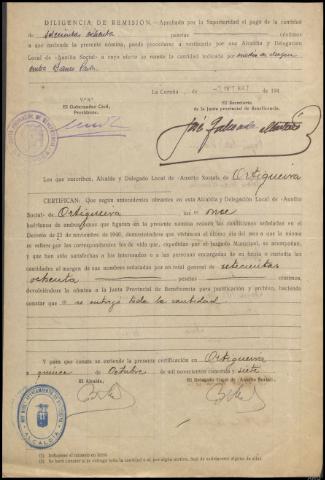 DILIGENCIA DE REMISION.—Aprobado por la Superioridad el pago de la cantidad
de setecientas ochenta pesetas céntimos
a que asciende la presente nómina, puede procederse a verificarlo por esa Alcaldía y Delegación
Local de «Auxilio Social» a cuyo efecto se remite la cantidad indicada por medio de cheque
contra Banco
La Coruña, OCT 1947 de 194
V.º B.º
El Gobernador Civil,
Presidente,
El Secretario
de la Junta provincial de Beneficencia,
José
Los que suscriben, Alcalde y Delegado Local de «Auxilio Social» de Ortigueira
CERTIFICAN: Que según antecedentes obrantes en esta Alcaldía y Delegación Local de «Auxilio
Social» de Ortigueira los (1) once
huérfanos de que figuran en la presente nómina reúnen las condiciones señaladas en el
Decreto de 23 de noviembre de 1940, demostrándose que vivían en el último día del mes a que la misma
se refiere por las correspondientes fes de vida que, expedidas por el juzgado Municipal, se acompañan,
y que han sido satisfechas a los interesados o a las personas encargadas de su hacia o custodia
las cantidades al margen de sus nombres señaladas por un total general de setecientas
ochenta pesetas céntimos,
devolviéndose la nómina a la Junta Provincial de Beneficencia para justificación y archivo, haciendo
constar que (2) se entregó toda la cantidad
Y para que conste se extiende la presente certificación en Ortigueira
a quince de Octubre de mil novecientos cuarenta y siete
El Alcalde,
El Delegado Local de «Auxilio Social»,
ALCALDIA
(1) Indíquese el número en letra
(2) Se hará constar si se entrega toda la cantidad o si, por algún motivo, dejó de satisfacerse alguna de ellas.